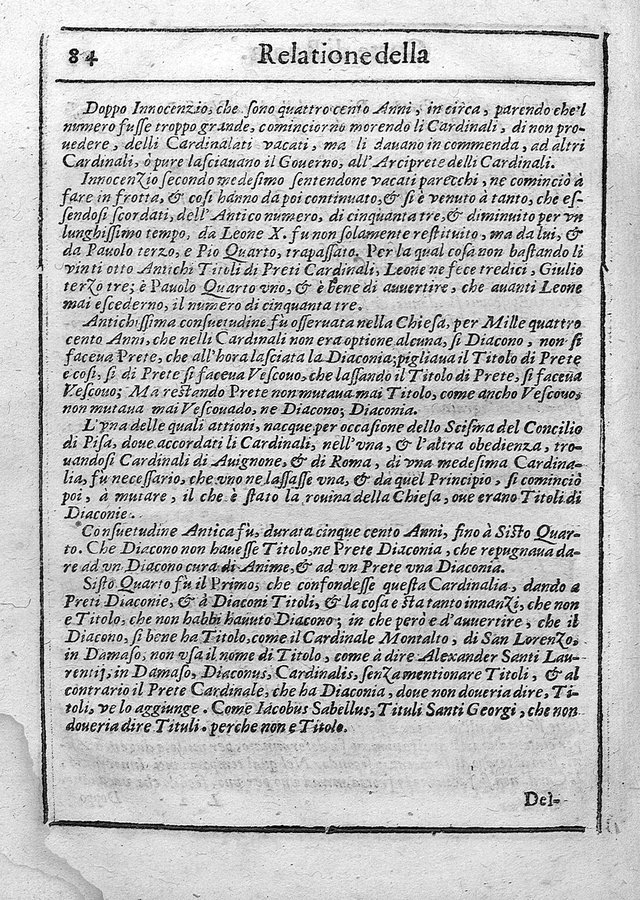 84 Relatione della
Doppo Innocenzio, che sono quattro cento Anni, in circa, parendo che'l
numero fusse troppo grande, cominciorno morendo li Cardinali, di non pro-
uedere, delli Cardinalati vacati, ma li dauano in commenda, ad altri
Cardinali, ò pure lasciauano il Gouerno, all'Arciprete delli Cardinali.
Innocenzio secondo medesimo sentendone vacati parecchi, ne cominciò a
fare in frotta, & cosi hanno da poi continuato, & si è venuto à tanto, che es-
sendosi scordati, dell'Antico numero, di cinquanta tre, & diminuito per vn
lunghissimo tempo, da Leone X. fu non solamente restituito, ma da lui, &
da Pauolo terzo, e Pio Quarto, trapassato. Per la qual cosa non bastando li
vinti otto Antichi Titoli di Preti Cardinali, Leone ne fece tredici, Giulio
terzo tre; è Pauolo Quarto vno, & è bene di auuertire, che auanti Leone
mai escederno, il numero di cinquanta tre.
Antichissima consuetudine fù osseruata nella Chiesa, per Mille quattro
cento Anni, che nelli Cardinali non era optione alcuna, si Diacono, non si
faceua Prete, che all'hora lasciata la Diaconia; pigliaua il Titolo di Prete
e cosi, si di Prete si faceua Vescouo, che lassando il Titolo di Prete, si faceua
Vescouo; Ma restando Prete non mutaua mai Titolo, come ancho Vescouo,
non mutaua mai Vescouado, ne Diacono; Diaconia.
L'vna delle quali attioni, nacque per occasione dello Scisma del Concilio
di Pisa, doue accordati li Cardinali, nell'vna, & l'altra obedienza, tro-
uandosi Cardinali di Auignone, & di Roma, di vna medesima Cardina-
lia, fu necessario, che vno ne lassasse vna, & da quel Principio, si cominciò
poi, à mutare, il che è stato la rouina della Chiesa, oue erano Titoli di
Diaconie.
Consuetudine Antica fu, durata cinque cento Anni, fino à Sisto Quar-
to. Che Diacono non hauesse Titolo, ne Prete Diaconia, che repugnaua da-
re ad vn Diacono cura di Anime, & ad vn Prete vna Diaconia.
Sisto Quarto fù il Primo; che confondesse questa Cardinalia, dando a
Preti Diaconie, & à Diaconi Titoli, & la cosa e sta tanto innanzi, che non
e Titolo, che non habbi hauuto Diacono; in che però e d'auuertire, che il
Diacono, si bene ha Titolo, come il Cardinale Montalto, di San Lorenzo,
in Damaso, non vsa il nome di Titolo, come à dire Alexander Santi Lau-
rentij, in Damaso, Diaconus, Cardinalis, senza mentionare Titoli, & al
contrario il Prete Cardinale, che ha Diaconia, doue non doueria dire, Ti-
toli, ve lo aggiunge. Come Iacobus Sabellus, Tituli Santi Georgi, che non
doueria dire Tituli. perche non e Titolo.
Del-